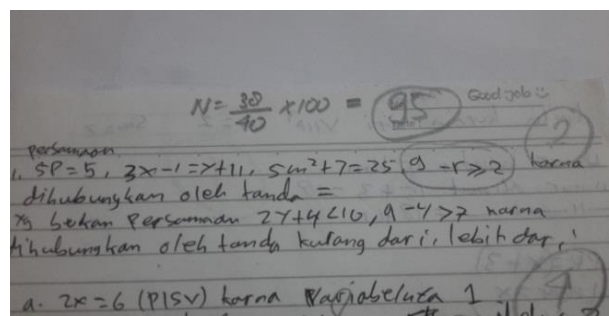 N = 38/40 x 100 = 95 Good job
2
persamaan
1. 5P = 5, 3x - 1 = x + 11, 5m² + 7 = 25 9 - r ≥ 2 karna
dihubungkan oleh tanda =
yg bukan Persamaan 2y + 4 < 10, 9 - y > 7 karna
dihubungkan oleh tanda kurang dari, lebih dar,
4
a. 2x = 6 (PlSV) karna Variabelnya 1